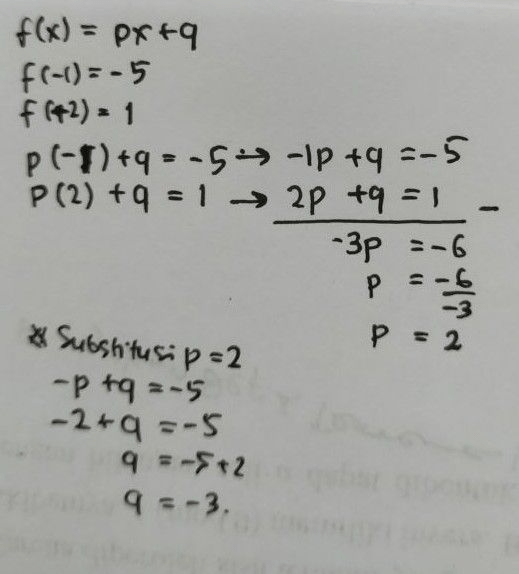 f(x) = px+q
f(-1) = -5
f(+2) = 1
p(-1)+q = -5 → -1p +q = -5
p(2) + q = 1 → 2p +q = 1 -
-3p = -6
p = -6/-3
p = 2
* Substitusi p = 2
-p +q = -5
-2+q = -5
q = -5+2
q = -3.